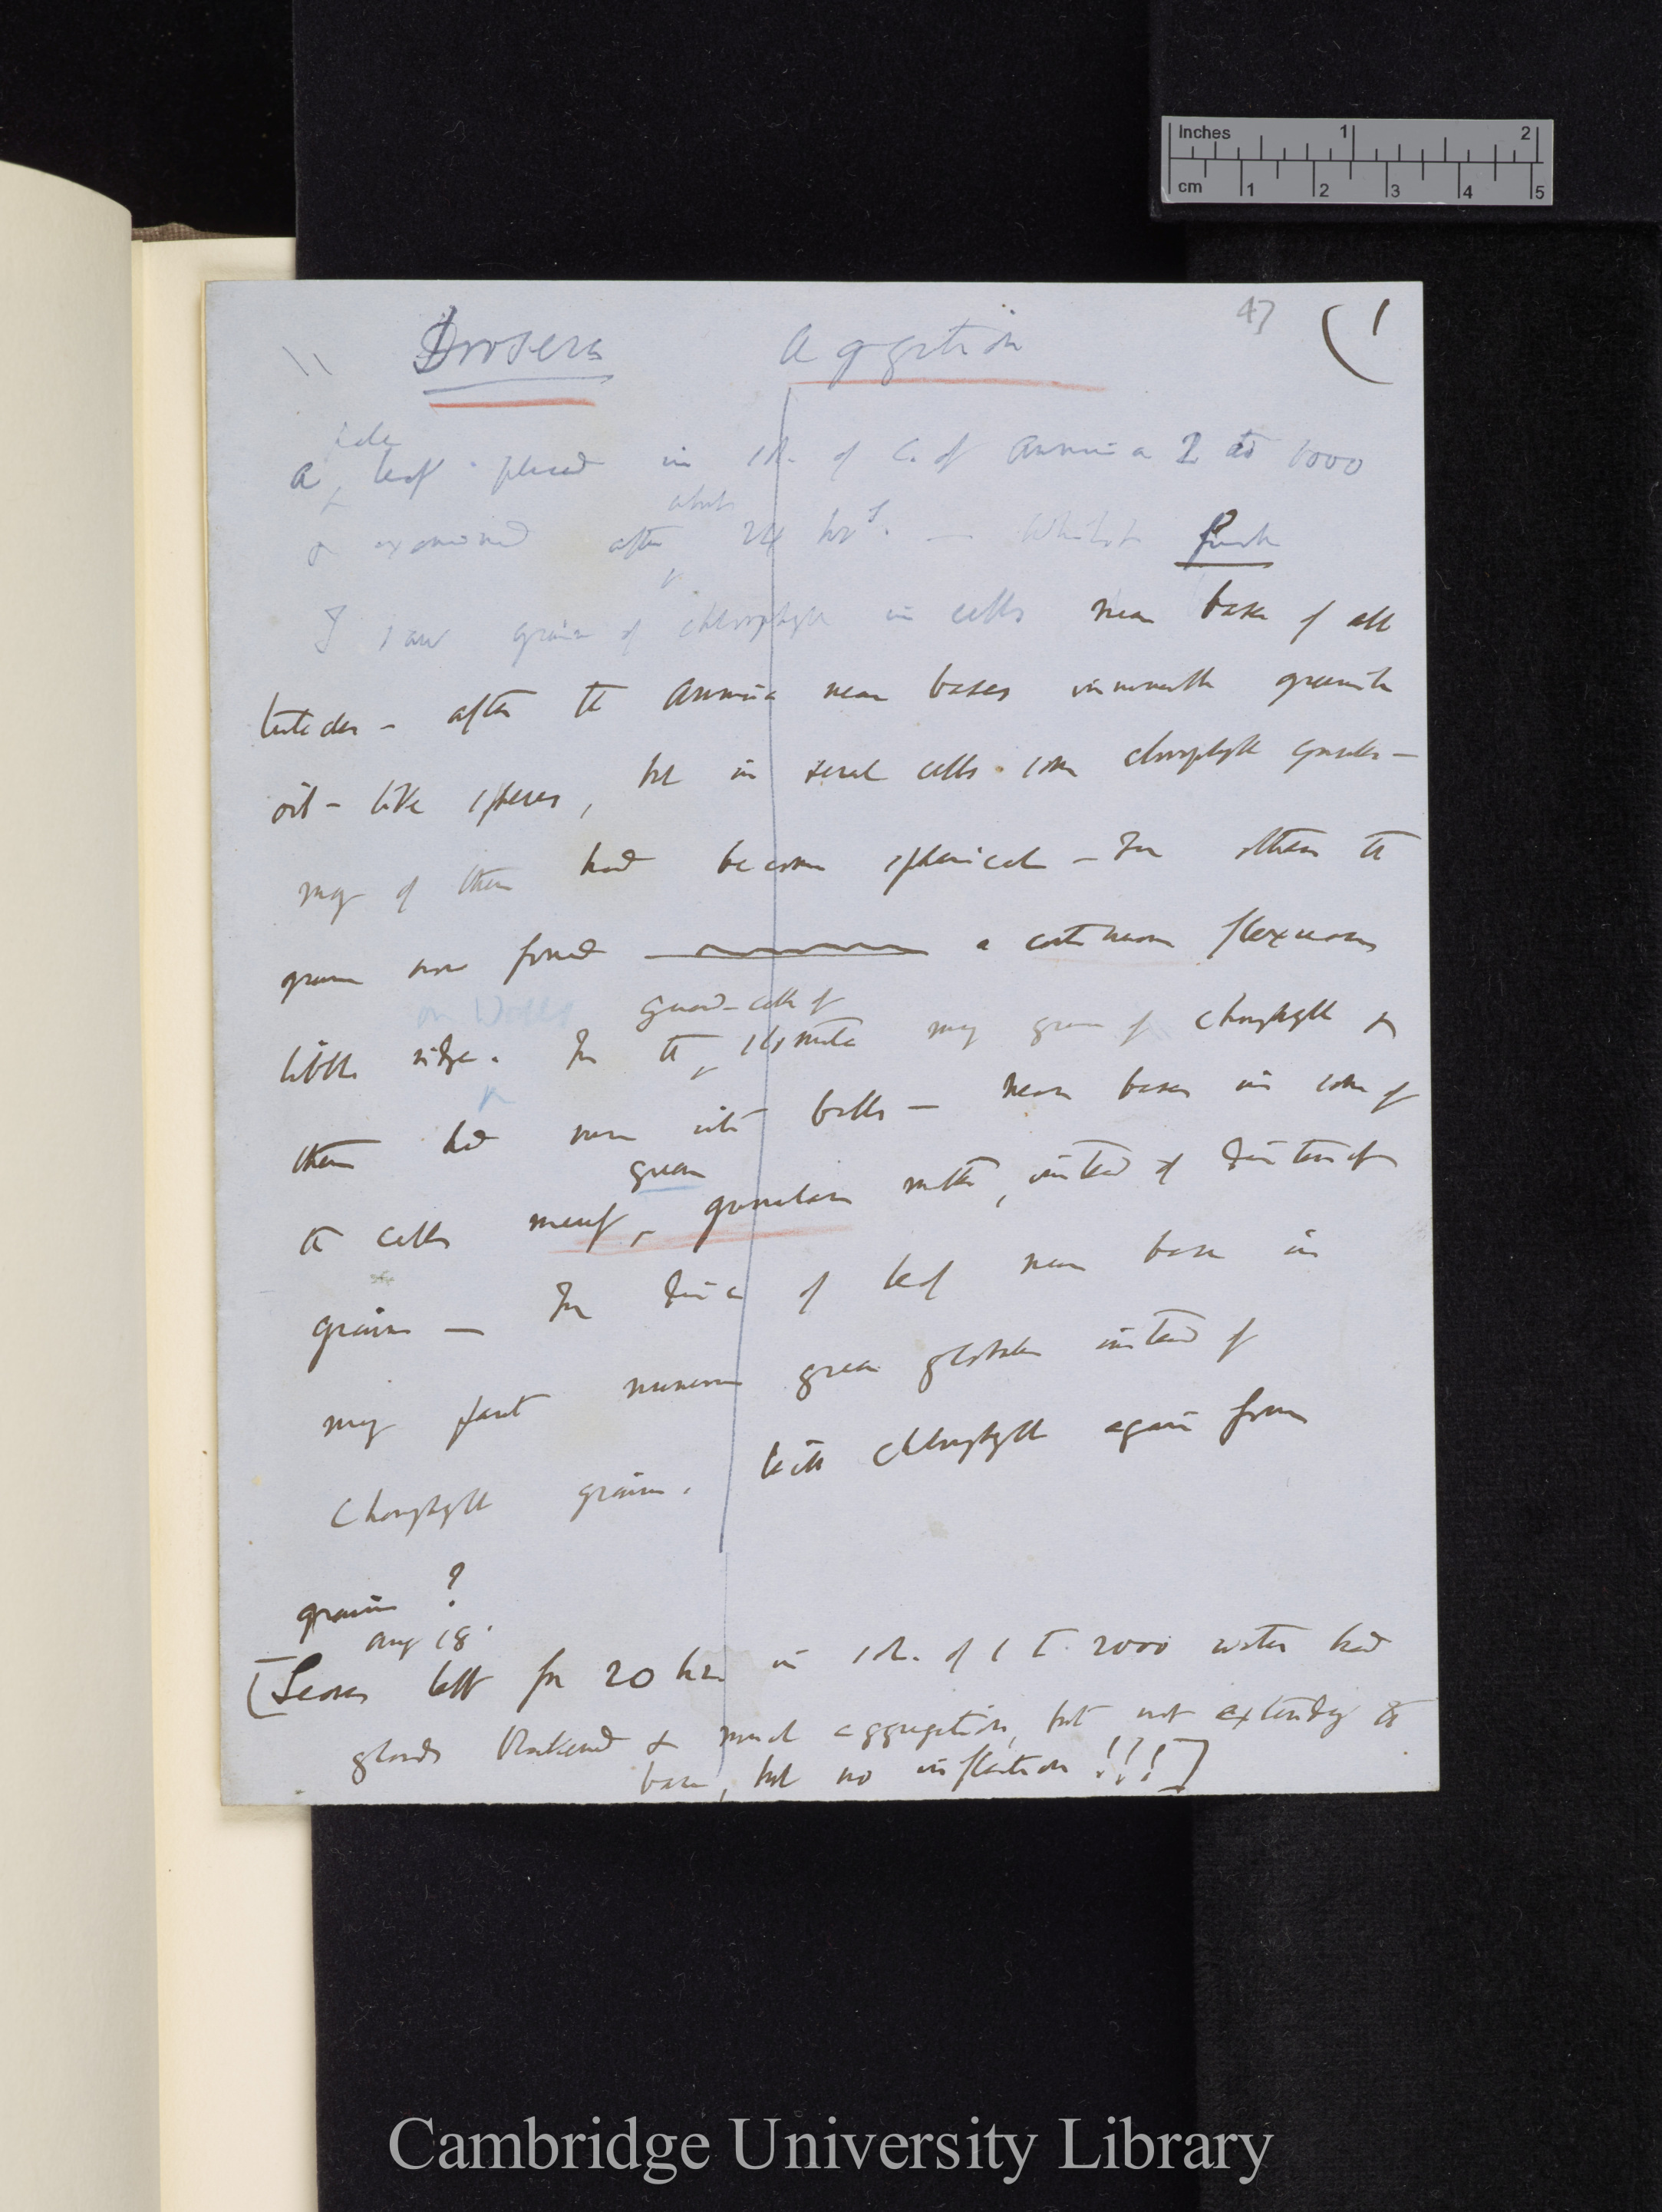 Inches 1 2
cm 1 2 3 4 5
47 (1
Drosera Aggrtion
pale
A leaf placed in sol. of C. of Ammonia 2 to 1000
about
& examined after 24 hrs. — Whilst fresh
I saw grains of chlorophyll in cells near base of all
tentacles – after the Ammonia near bases greenish
oil-like spheres, but in several cells some chlorophyll –
many of them had become spherical – In others the
green now formed a continuous flexuous
on Walls guard-cells of
little ridge. In the stomata many grains of chlorophyll &
them had run into balls — near bases in some of
green
the cells merely granular matter, instead of distinct
grains — In disc of leaf near base in
many parts numerous green globules instead of
Chlorophyll grains. Will chlorophyll again form
grains?
Aug 18.
[Leaves left for 20 hrs in sol. of 1 to 2000 water had
glands blackened & much aggregation, but not extending to
base, but no inflection!!!]
Cambridge University Library